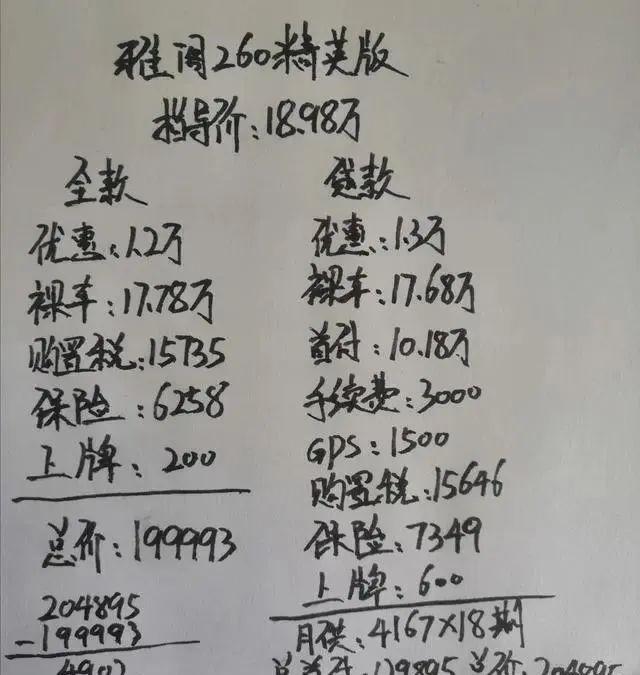 雅阁260精英版
指导价:18.98万
全款
优惠:1.2万
裸车:17.78万
购置税:15735
保险:6258
上牌:200
总价:199993
204895
-199993
4902
贷款
优惠:1.3万
裸车:17.68万
首付:10.18万
手续费:3000
GPS:1500
购置税:15646
保险:7349
上牌:600
月供:4167×18期
总首付:129895 总价:204895